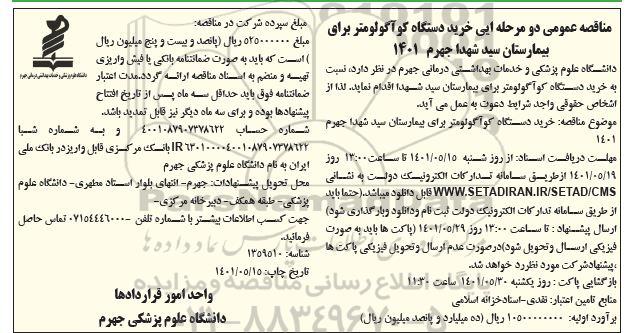 مناقصه عمومی دو مرحله ایی خرید دستگاه کوآگولومتر برای
بیمارستان سید شهدا جهرم ۱۴۰۱
دانشگاه علوم پزشکی و خدمات بهداشتی درمانی جهرم در نظر دارد، نسبت
به خرید دستگاه کوآگولومتر برای بیمارستان سید شهدا اقدام نماید. لذا از
اشخاص حقوقی واجد شرایط دعوت به عمل می آید.
موضوع مناقصه: خرید دستگاه کوآگولومتر برای بیمارستان سید شهدا جهرم
۱۴۰۱
مهلت دریافت اسناد: از روز شنبه ۱۴۰۱/۰۵/۱۵ تا ساعت ۱۳:۰۰ روز
۱۴۰۱/۰۵/۱۹ ازطریق سامانه تدارکات الکترونیک دولت به نشانی
WWW.SETADIRAN.IR/SETAD/CMS قابل دانلود میباشد.(حتما باید
از طریق سامانه تدارکات الکترونیک دولت ثبت نام ودانلود وبارگذاری شود)
ارسال پیشنهاد : تا ساعت ۱۳:۰۰ روز ۱۴۰۱/۰۵/۲۹ (پاکت ها باید به صورت
فیزیکی ارسال و تحویل شود)درصورت عدم ارسال و تحویل فیزیکی پاکت ها
،پیشنهادشرکت مورد نظررد خواهد شد.
بازگشایی پاکت : روز یکشنبه ۱۴۰۱/۰۵/۳۰ ساعت ۱۱:۳۰
منابع تامین اعتبار: نقدی-اسنادخزانه اسلامی
برآورد اولیه: ۱۰۵۰۰۰۰۰۰۰۰ ریال (ده میلیارد و پانصد میلیون ریال)
مبلغ سپرده شرکت در مناقصه:
مبلغ ۵۲۵۰۰۰۰۰۰ ریال (پانصد و بیست و پنج میلیون ریال
) است که باید به صورت ضمانتنامه بانکی یا فیش واریزی
تهیه و منضم به اسناد مناقصه ارائه گردد.مدت اعتبار
ضمانتنامه فوق باید حداقل سه ماه پس از تاریخ افتتاح
پیشنهادها بوده و برای سه ماه دیگر نیز قابل تمدید باشد.
شماره حساب ۴۰۰۱۰۸۷۹۰۷۳۷۸۶۲۲ و به شماره شبا
IR۶۳۰۱۰۰۰۰۴۰۰۱۰۸۷۹۰۷۳۷۸۶۲۲ بانک مرکزی قابل واریزدر بانک ملی
ایران به نام دانشگاه علوم پزشکی جهرم
محل تحویل پیشنهادات: جهرم- انتهای بلوار استاد مطهری- دانشگاه علوم
پزشکی- طبقه همکف- دبیرخانه مرکزی-
جهت کسب اطلاعات بیشتر با شماره تلفن ۰۷۱۵۴۴۴۶۰۰۰ تماس حاصل
فرمائید.
شناسه: ۱۳۵۹۵۱۰
تاریخ چاپ: ۱۴۰۱/۰۵/۱۵
واحد امور قراردادها
دانشگاه علوم پزشکی جهرم